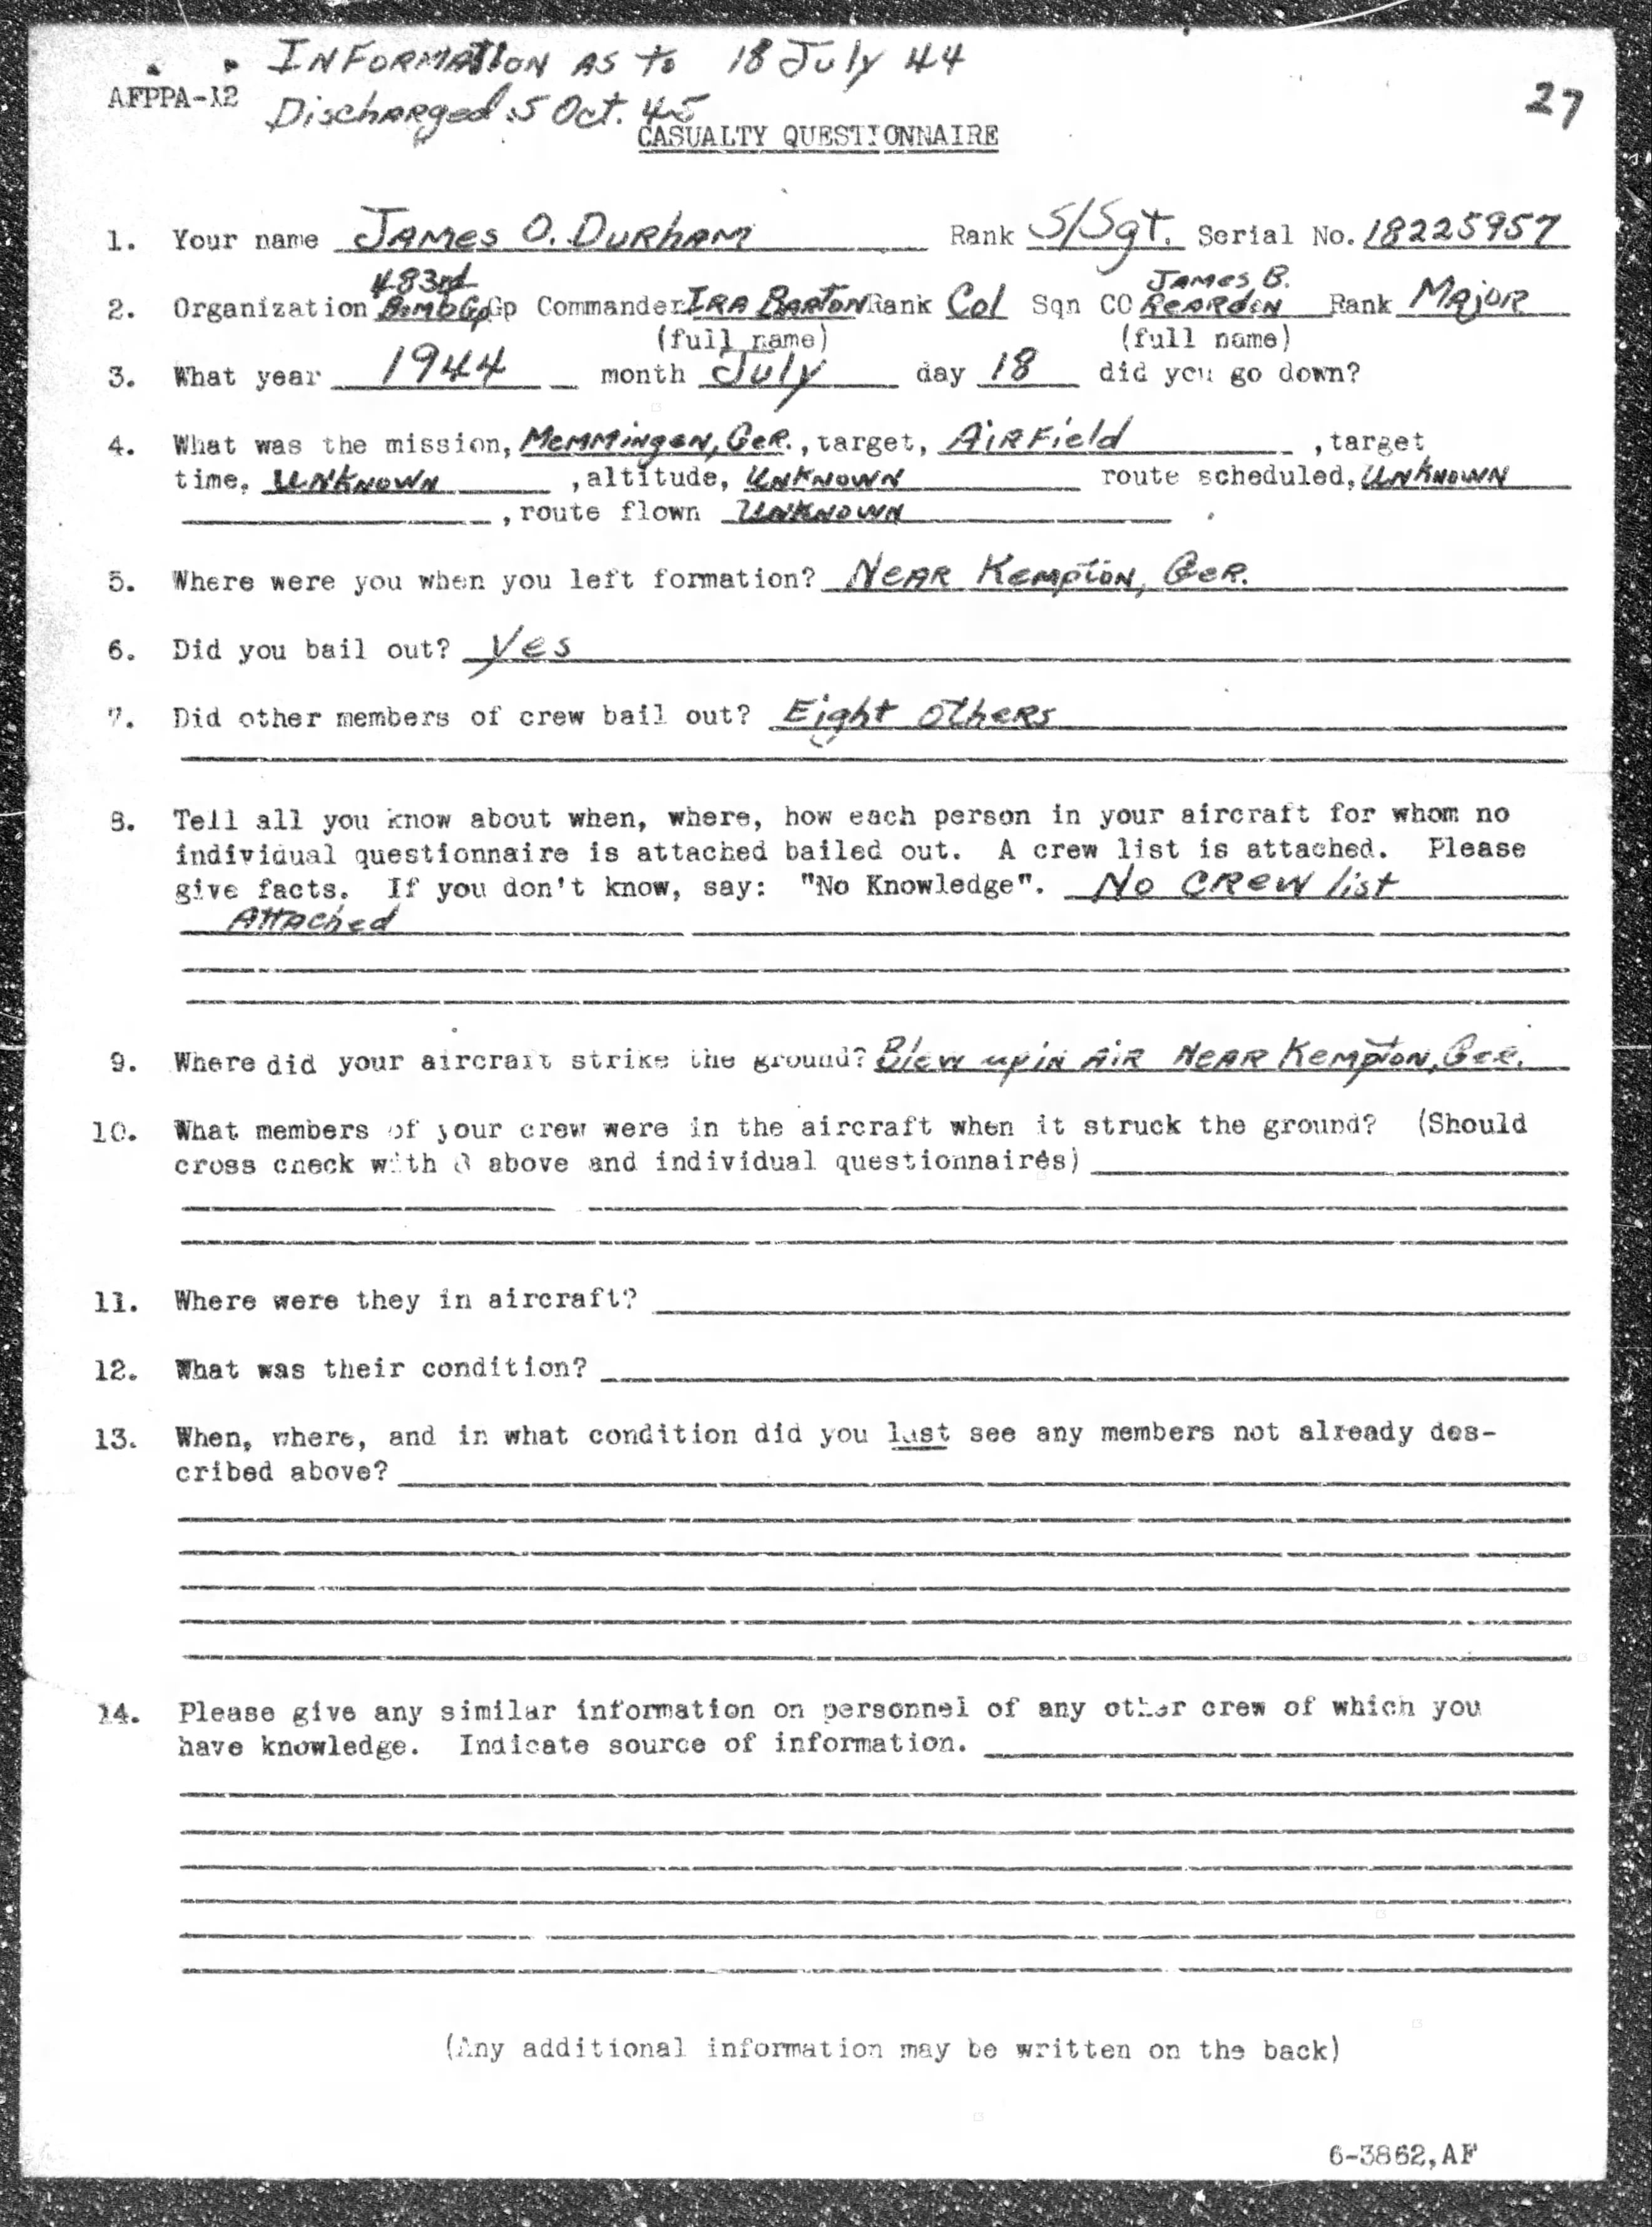 INFORMATION AS to 18 July 44
AFPPA-12
Discharged 5 Oct. 45
27
CASUALTY QUESTIONNAIRE
1. Your name JAMES O. DURHAM Rank S/Sgt. Serial No. 18225957
483rd James B.
2. Organization Bomb Gp Gp Commander IRA BARTON Rank Col Sqn CO REARDEN Rank MAJOR
(full name) (full name)
3. What year 1944 month July day 18 did you go down?
4. What was the mission, Memmingen, Ger., target, AIRField, target
time, UNKNOWN, altitude, UNKNOWN route scheduled, UNKNOWN
, route flown UNKNOWN.
5. Where were you when you left formation? NEAR Kempton, Ger.
6. Did you bail out? Yes
7. Did other members of crew bail out? Eight OTHERS
8. Tell all you know about when, where, how each person in your aircraft for whom no
individual questionnaire is attached bailed out. A crew list is attached. Please
give facts. If you don't know, say: "No Knowledge". No CREW list
Attached
9. Where did your aircraft strike the ground? Blew up in AIR NEAR Kempton, Ger.
10. What members of your crew were in the aircraft when it struck the ground? (Should
cross check with 8 above and individual questionnaires)
11. Where were they in aircraft?
12. What was their condition?
13. When, where, and in what condition did you last see any members not already des-
cribed above?
14. Please give any similar information on personnel of any other crew of which you
have knowledge. Indicate source of information.
(Any additional information may be written on the back)
6-3862,AF